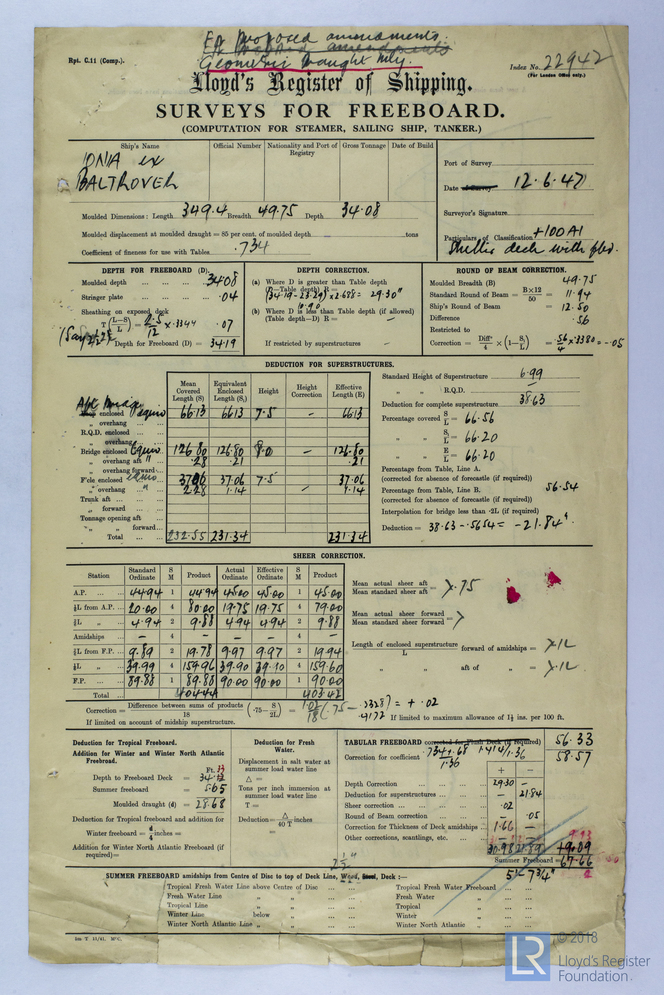 For proposed amendments.
Geometric Draught only.
Rpt. C.11 (Comp.).
Index No. 22942
(For London Office only.)
Lloyd's Register of Shipping.
SURVEYS FOR FREEBOARD.
(COMPUTATION FOR STEAMER, SAILING SHIP, TANKER.)
Ship's Name
Official Number
Nationality and Port of Registry
Gross Tonnage
Date of Build
IONIA ex
BALTROVER
Port of Survey
Date of Survey 12.6.47
Surveyor's Signature
Particulars of Classification +100 A1
Shelter deck with fbd.
Moulded Dimensions: Length 349.4 Breadth 49.75 Depth 34.08
Moulded displacement at moulded draught = 85 per cent. of moulded depth tons
Coefficient of fineness for use with Tables .734
DEPTH FOR FREEBOARD (D).
Moulded depth 34.08
Stringer plate .04
Sheathing on exposed deck
T (L-S/L) = 2.5/12 x .3344 .07
Depth for Freeboard (D) = 34.19
DEPTH CORRECTION.
(a) Where D is greater than Table depth
(D-Table depth) R =
(34.19-23.29) x 2.688 = 29.30"
10.90
(b) Where D is less than Table depth (if allowed)
(Table depth-D) R = –
If restricted by superstructures –
ROUND OF BEAM CORRECTION.
Moulded Breadth (B) 49.75
Standard Round of Beam = B×12/50 = 11.94
Ship's Round of Beam = 12.50
Difference .56
Restricted to
Correction = Diff/4 × (1-S₁/L) = .56/4 x .3380 = -.05
DEDUCTION FOR SUPERSTRUCTURES.
Mean Covered Length (S)
Equivalent Enclosed Length (S₁)
Height
Height Correction
Effective Length (E)
enclosed Equiv 66.13 66.13 7.5 – 66.13
" overhang
R.Q.D. enclosed
" overhang
Bridge enclosed Equiv 126.80 126.80 8.0 – 126.80
" overhang aft " .28 .21 .21
" overhang forward
F'cle enclosed Equiv 37.06 37.06 7.5 37.06
" overhang " 2.28 1.14 – 1.14
Trunk aft
" forward
Tonnage opening aft
" " forward
Total 232.55 231.34 231.34
Standard Height of Superstructure 6.99
" " R.Q.D. –
Deduction for complete superstructure 38.63
Percentage covered S/L = 66.56
" " S₁/L = 66.20
" " E/L = 66.20
Percentage from Table, Line A.
(corrected for absence of forecastle (if required))
Percentage from Table, Line B. 56.54
(corrected for absence of forecastle (if required))
Interpolation for bridge less than ·2L (if required)
Deduction = 38.63 × .5654 = -21.84"
SHEER CORRECTION.
Station
Standard Ordinate
S M
Product
Actual Ordinate
Effective Ordinate
S M
Product
A.P. 44.94 1 44.94 45.00 45.00 1 45.00
⅙L from A.P. 20.00 4 80.00 19.75 19.75 4 79.00
⅓L " 4.94 2 9.88 4.94 4.94 2 9.88
Amidships – 4 – – – 4 –
⅓L from F.P. 9.89 2 19.78 9.97 9.97 2 19.94
⅙L " 39.99 4 159.96 39.90 39.90 4 159.60
F.P. 89.88 1 89.88 90.00 90.00 1 90.00
Total 404.44 403.42
Mean actual sheer aft / Mean standard sheer aft = >.75
Mean actual sheer forward / Mean standard sheer forward = >
Length of enclosed superstructure / L forward of amidships = >.1L
" " aft of " = >.1L
Correction = Difference between sums of products/18 (·75-S/2L) = 1.02/18 (.75-.3328) = +.02
.4172
If limited on account of midship superstructure.
If limited to maximum allowance of 1½ ins. per 100 ft.
Deduction for Tropical Freeboard.
Addition for Winter and Winter North Atlantic Freeboard.
Ft.
Depth to Freeboard Deck =
Summer freeboard = 5.65
Moulded draught (d) = 28.68
Deduction for Tropical freeboard and addition for
Winter freeboard = d/4 inches =
Addition for Winter North Atlantic Freeboard (if required) =
Deduction for Fresh Water.
Displacement in salt water at summer load water line
Δ =
Tons per inch immersion at summer load water line
T =
Deduction = Δ/40 T inches
=
TABULAR FREEBOARD corrected for Flush Deck (if required) 56.33
Correction for coefficient .734+.68/1.36 1.414/1.36 58.57
+ –
Depth Correction 29.30 –
Deduction for superstructures – 21.84
Sheer correction .02
Round of Beam correction – .05
Correction for Thickness of Deck amidships 1.66 –
Other corrections, scantlings, etc.
30.98 21.89 +9.09
Summer Freeboard = 67.66
5'-7¾"
2½"
SUMMER FREEBOARD amidships from Centre of Disc to top of Deck Line, Wood, Steel, Deck :—
Tropical Fresh Water Line above Centre of Disc
Fresh Water Line " "
Tropical Line " "
Winter Line below "
Winter North Atlantic Line " "
Tropical Fresh Water Freeboard
Fresh Water "
Tropical "
Winter "
Winter North Atlantic "
LR
© 2018
Lloyd's Register
Foundation